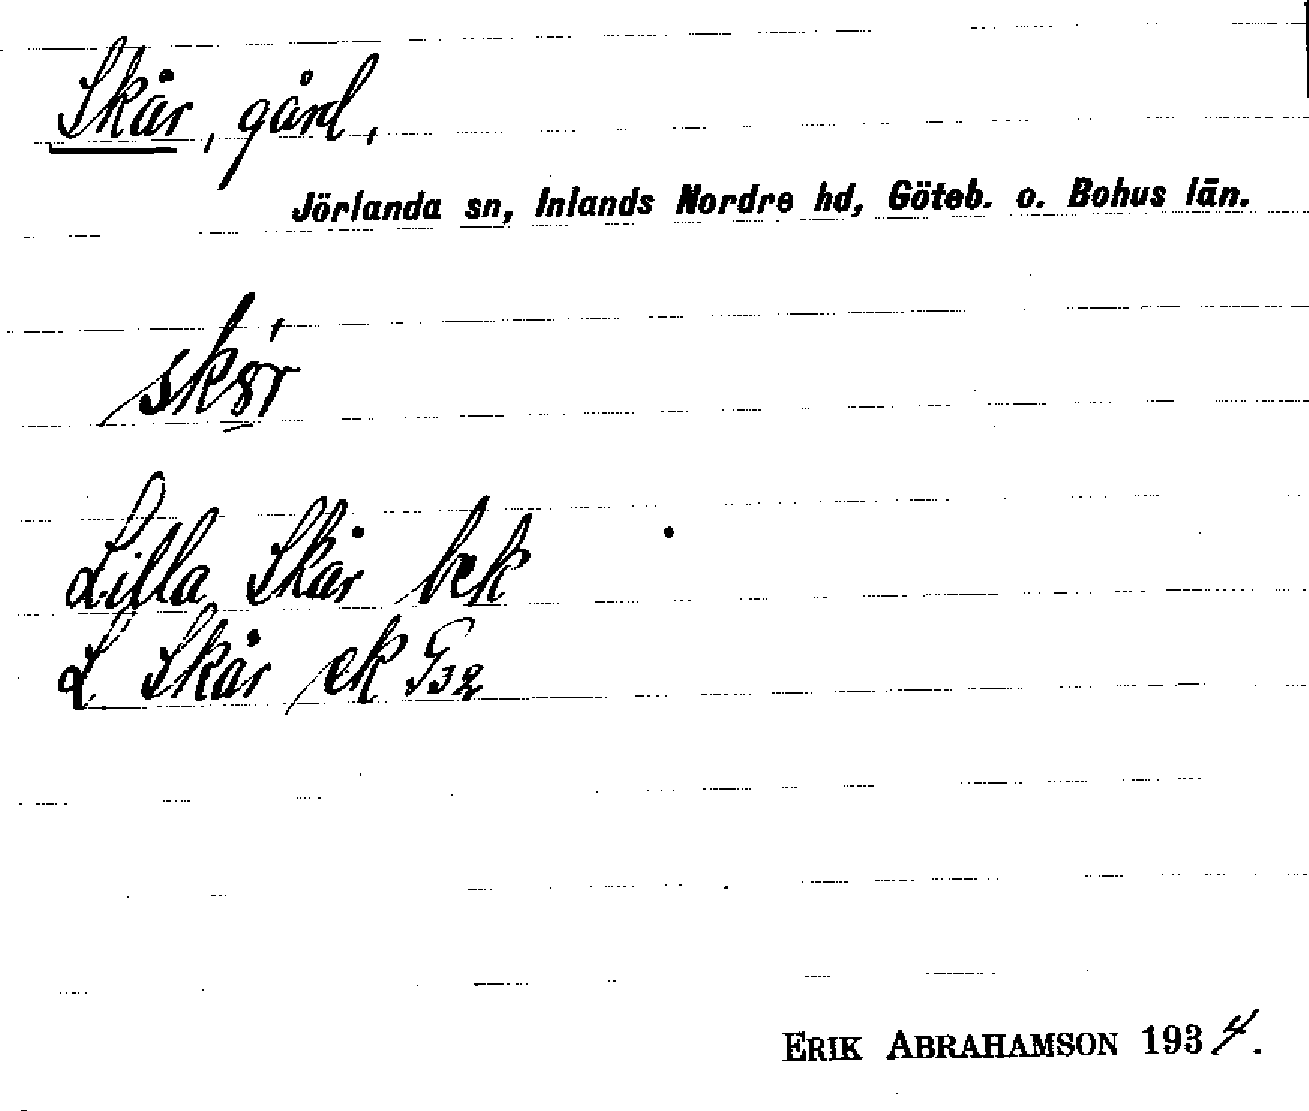 Skår, gård,
Jörlanda sn, Inlands Nordre hd, Göteb. o. Bohus län.
Lilla Skår bek
L Skår ek G32
ERIK ABRAHAMSON 1934.